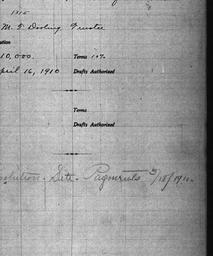 1915
M. F. Dooling Trustee
ation
10,000. Terms 10%
April 16, 1910 Drafts Authorized
Terms
Drafts Authorized
solution - Site - Payments 3/18/1910.